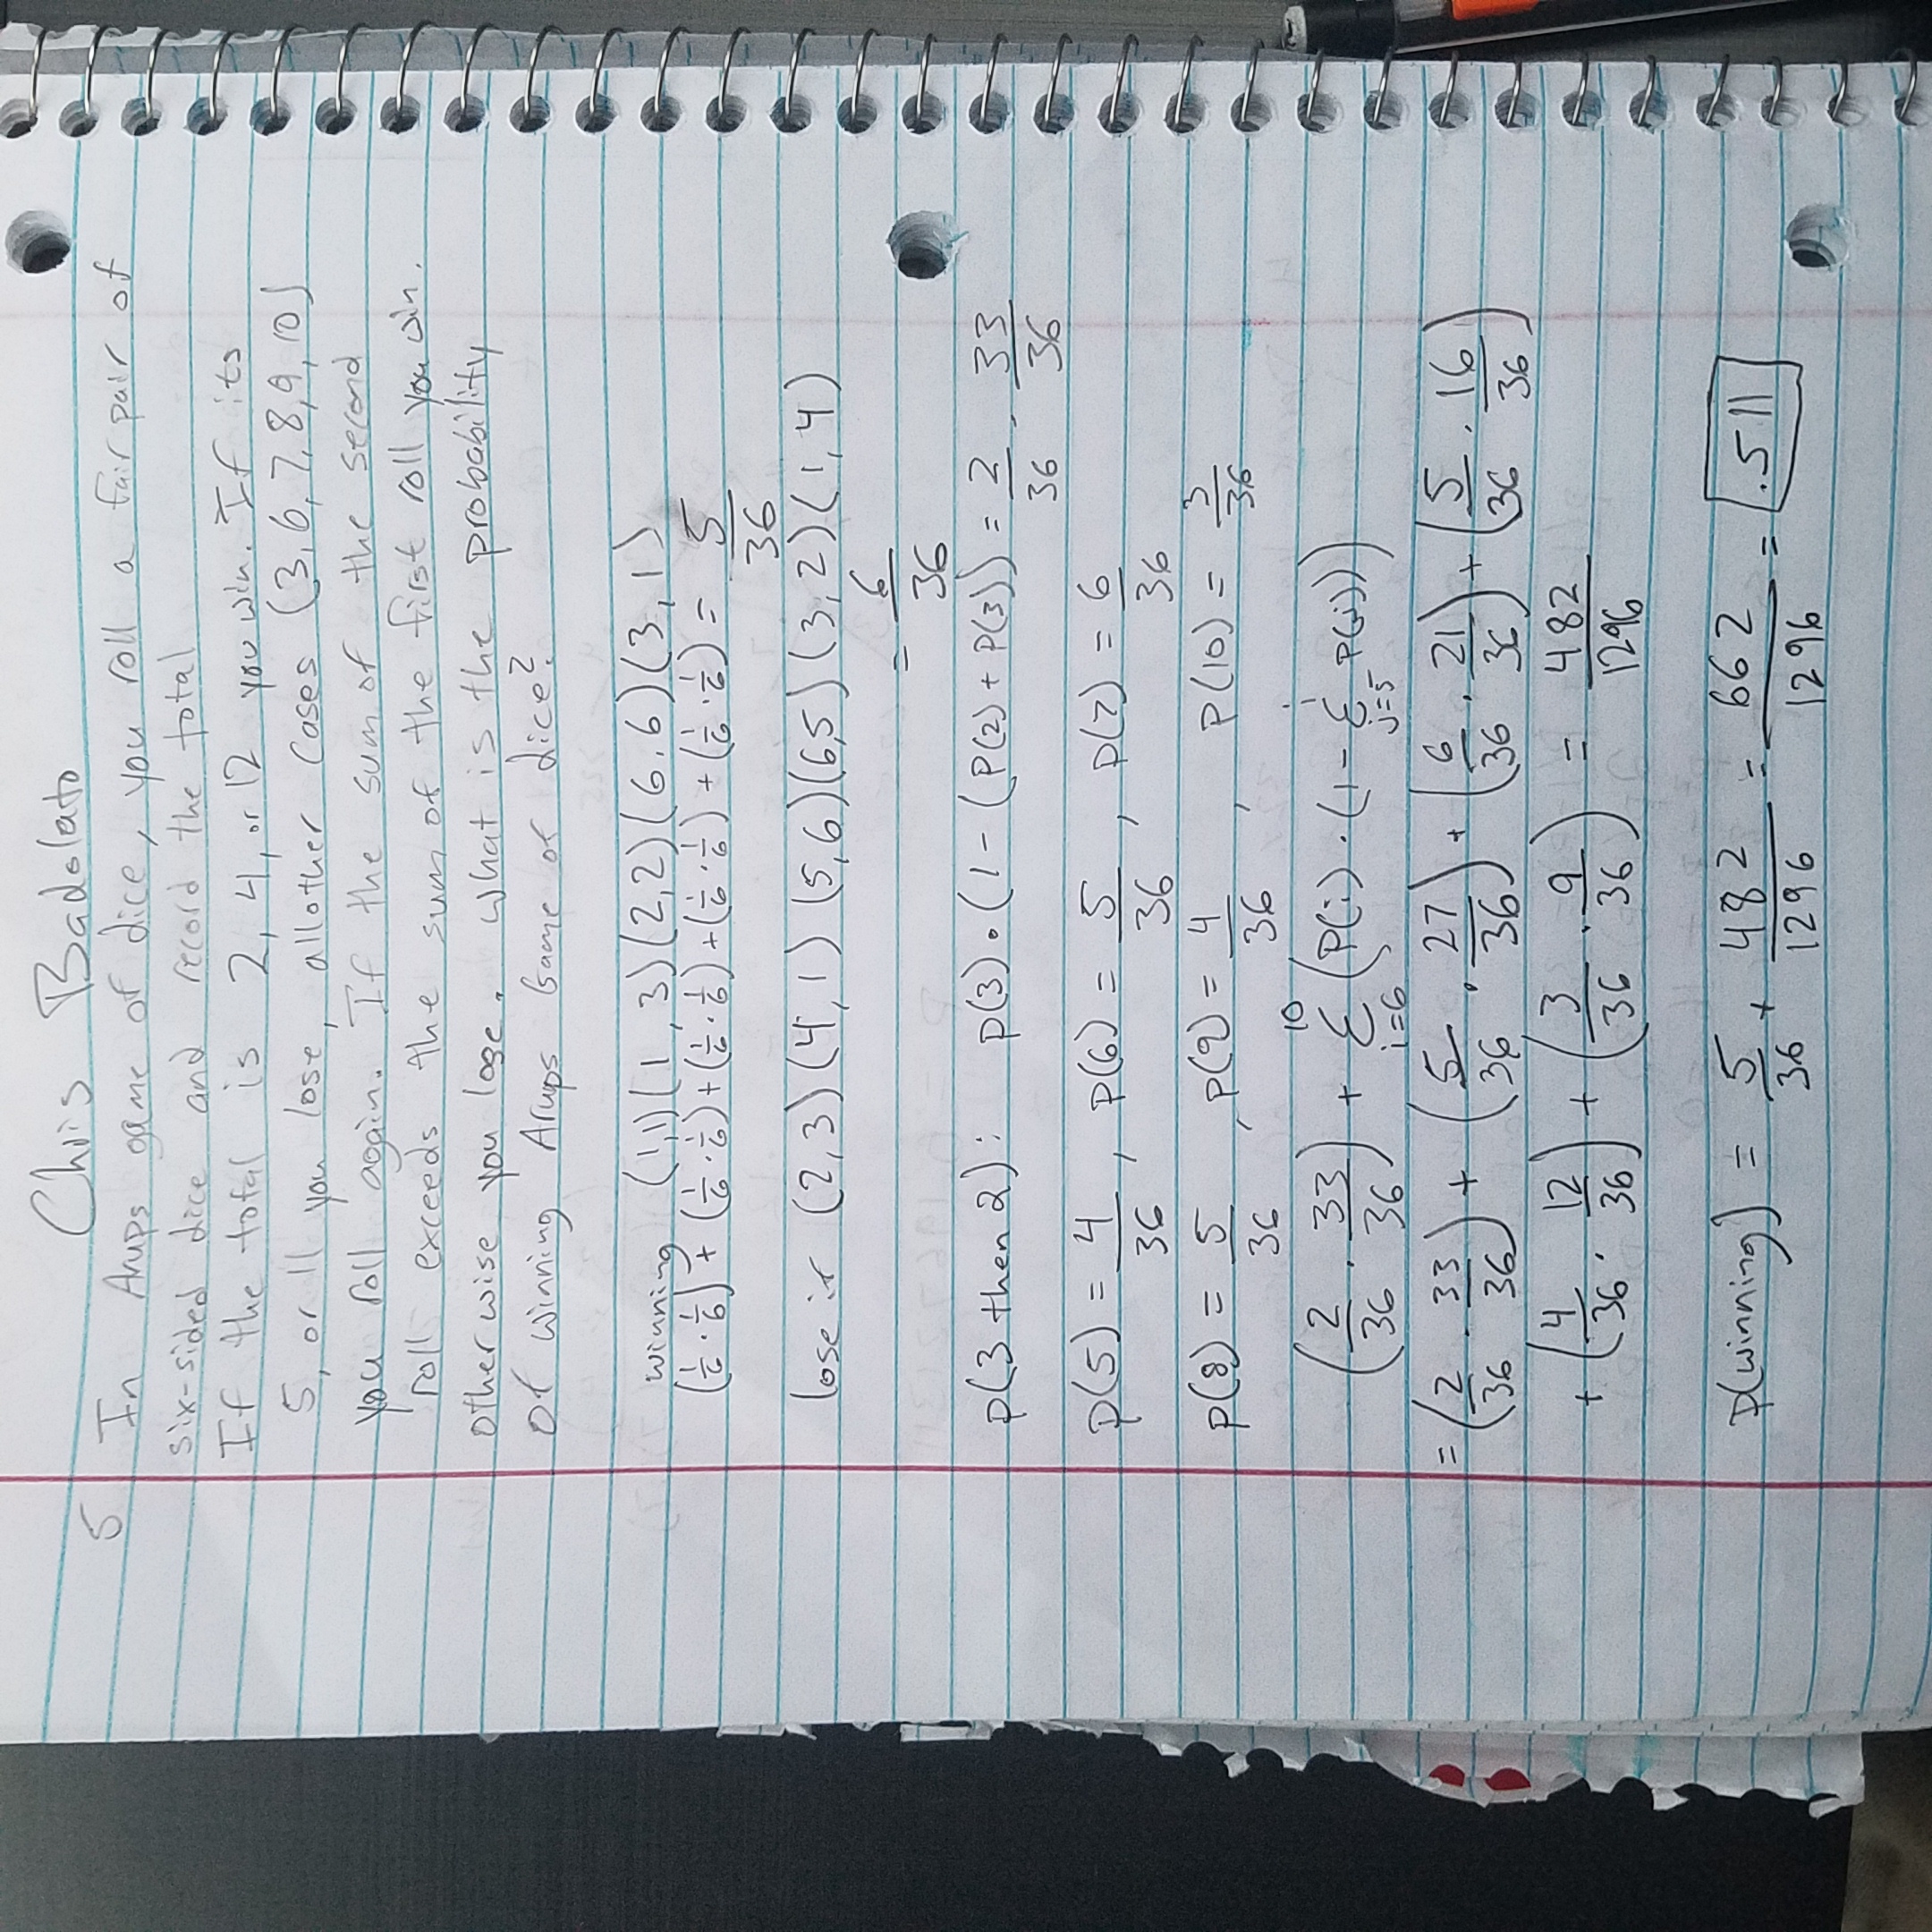 Chris Badolato
5 In Arups game of dice, you roll a fair pair of
six-sided dice and record the total
If the total is 2, 4, or 12 you win. If its
5, or 11 you lose, all other cases (3,6,7,8,9,10)
you roll again. If the sum of the second
roll exceeds the sum of the first roll you win.
otherwise you lose. What is the probability
of winning Arups Game of dice?
winning (1,1)(1,3)(2,2)(6,6)(3,1)
(1/6 · 1/6) + (1/6 · 1/6) + (1/6 · 1/6) + (1/6 · 1/6) + (1/6 · 1/6) = 5/36
lose if (2,3)(4,1)(5,6)(6,5)(3,2)(1,4)
= 6/36
p(3 then 2): p(3) · (1 - (P(2) + P(3)) = 2/36 · 33/36
p(5) = 4/36, p(6) = 5/36, p(7) = 6/36
p(8) = 5/36, p(9) = 4/36, P(10) = 3/36
(2/36 · 33/36) + Σ 10 i=6 (P(i) · (1 - Σ i j=5 P(j)))
= (2/36 · 33/36) + (5/36 · 27/36) + (6/36 · 21/36) + (5/36 · 16/36)
+ (4/36 · 12/36) + (3/36 · 9/36) = 482/1296
p(winning) = 5/36 + 482/1296 = 662/1296 = .511